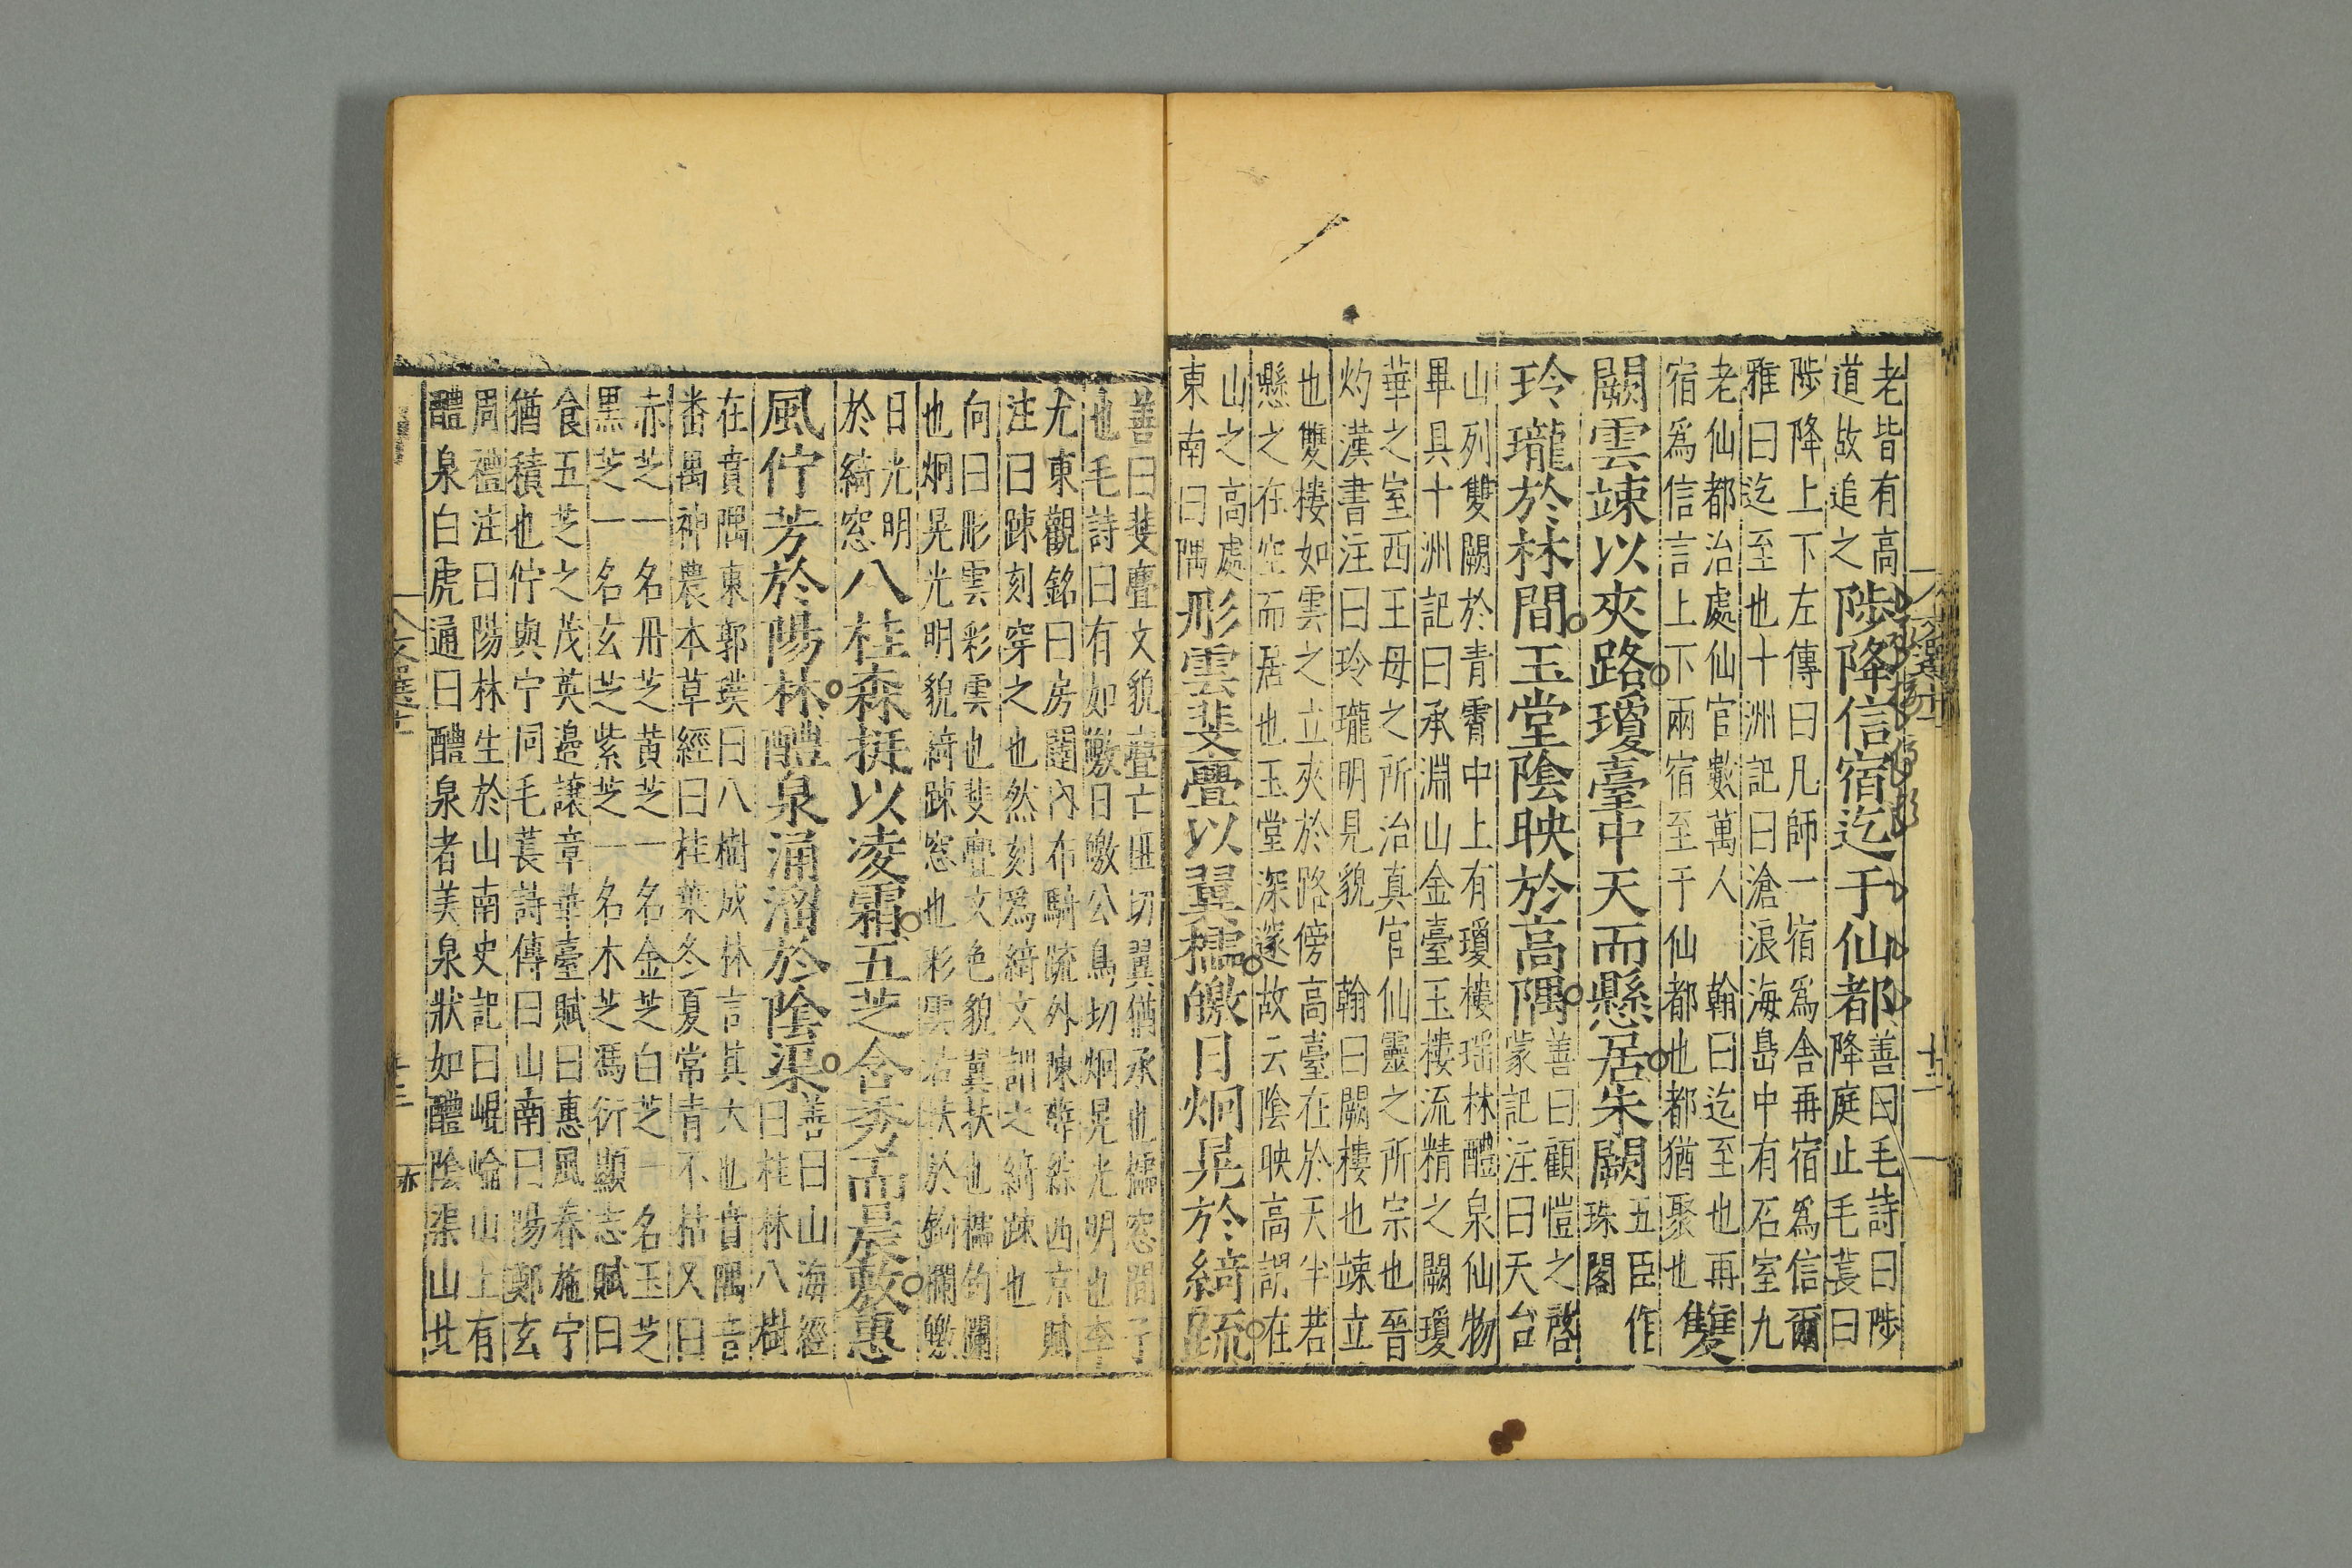 老皆有高
道故追之
陟降信宿迄于仙都
善曰毛詩曰陟
降庭止毛萇曰
陟降上下左傳曰凡師一宿爲舍再宿爲信爾
雅曰迄至也十洲記曰滄浪海島中有石室九
老仙都治處仙官數萬人 翰曰迄至也再
宿爲信言上下兩宿至于仙都也都猶聚也
雙
闕雲竦以夾路瓊臺中天而懸居朱闕
五臣作
珠閣
玲瓏於林間玉堂陰映於高隅
善曰顧愷之啓
蒙記注曰天台
山列雙闕於青霄中上有瓊樓瑶林醴泉仙物
畢具十洲記曰承淵山金臺玉樓流精之闕瓊
華之室西王母之所治真官仙靈之所宗也晉
灼漢書注曰玲瓏明見貌 翰曰闕樓也竦立
也雙樓如雲之立夾於路傍高臺在於天半若
懸之在空而居也玉堂深邃故云陰映高謂在
山之高處
東南曰隅
彤雲斐亹以翼櫺皦日炯晃於綺疏
善曰斐亹文貌亹亡匪切翼猶承也櫺窓間子
也毛詩曰有如皦日皦公鳥切炯晃光明也李
尤東觀銘曰房闥內布騎疏外陳薛綜西京賦
注曰疎刻穿之也然刻爲綺文謂之綺疎也
向曰彤雲彩雲也斐亹文色貌翼扶也櫺鈎闌
也炯晃光明貌綺疎窓也彩雲若扶於鈎欄皦
日光明
於綺窓
八桂森挺以凌霜五芝含秀而晨敷惠
風佇芳於陽林醴泉涌溜於陰渠
善曰山海經
曰桂林八樹
在賁隅東郭璞曰八樹成林言其大也賁隅音
番禺神農本草經曰桂葉冬夏常青不枯又曰
赤芝一名丹芝黃芝一名金芝白芝一名玉芝
黑芝一名玄芝紫芝一名木芝馮衍顯志賦曰
食五芝之茂英邉讓章華臺賦曰惠風春施宁
猶積也佇與宁同毛萇詩傳曰山南曰陽鄭玄
周禮注曰陽林生於山南史記曰崐崘山上有
醴泉白虎通曰醴泉者美泉狀如醴陰渠山北